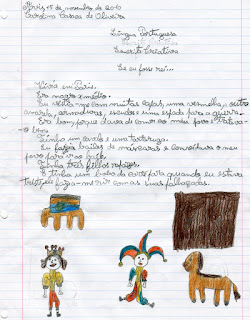 15 de novembro de 2010
Carolina Casais de Oliveira
Língua Portuguesa
Escrita Criativa
Se eu fosse rei...
Vivia em Paris.
Era magro e médio.
Eu vestia-me com muitas capas, uma vermelha, outra
amarela, armaduras, escudos e uma espada para a guerra.
Era bom porque dava de comer ao meu povo e tratava-
o bem.
Tinha um cavalo e uma tartaruga.
Eu fazia bailes de máscaras e convidava o meu
povo para ir ao baile.
Tinha três filhos rapazes.
E tinha um bobo da corte para quando eu estiva
triste, ele fazia-me rir com as suas palhaçadas.